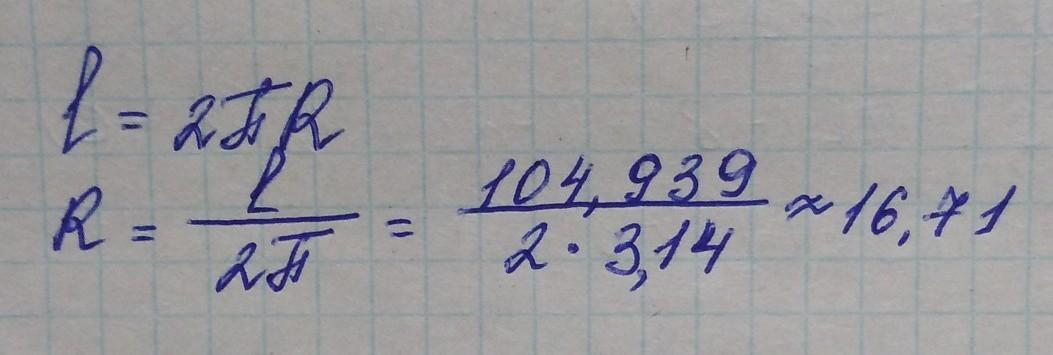 l = 2πR
R = l / 2π = 104,939 / 2 · 3,14 ≈ 16,71